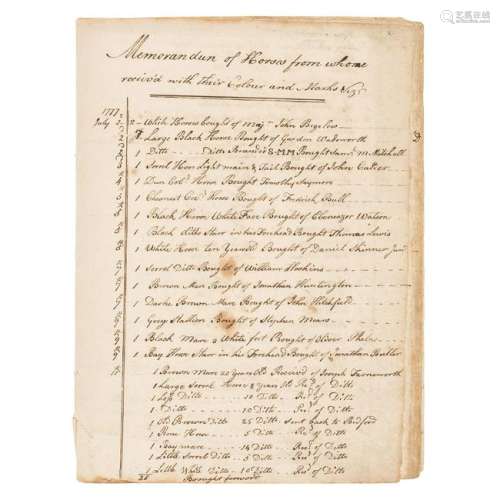 Memorandum of Horses from whome
receiv'd with their Colour and Marks &c
1777
July 2 2 - White Horses bought of Maj John Bigelow
2 1 Large Black Horse Bought of Gurdon Wadsworth
2 1 Ditto Ditto Branded S-MM Bought M. Mitchell
3 1 Sorrel Hors light main & Tail Bought of John Calder
4 1 Dun Horse Bought Timothy Seymore
5 1 Chesnut Horse Bought of Fredrick Bull
1 Black Horse White Face Bought of Ebenezer Watson
1 Black ditto Starr in his Forehead Bought Thomas Lewis
8 1 White Horse ten years Bought of Daniel Skinner Junr
1 Sorrel Ditto Bought of William Hoskins
1 Brown Mare Bought of Jonathan Huntington
1 Darke Brown Mare Bought of John
1 Grey Stallion Bought of Stephen Mears
1 Black Mare 2 White feet Bought of Oliver Phelps
9 1 Bay Horse Starr in his Forehead Bought of Jonathan Butler
1 Brown Mare 22 years Old Received of Joseph Farnsworth
1 Large Sorrel Horse 8 years Old Recd of Ditto
1 Less Ditto 10 Ditto Recd of Ditto
1 Ditto 10 Ditto Recd of Ditto
1 Old Browne Ditto 25 Ditto Sent back to Bedford
1 Rone Horse 5 Ditto Recd of Ditto
1 Bay mare 14 Ditto Recd of Ditto
1 Little Sorrel Ditto 5 Ditto Recd of Ditto
1 Little White Ditto 10 Ditto Recd of Ditto
Brought forward
易拍全球
yipai.cn